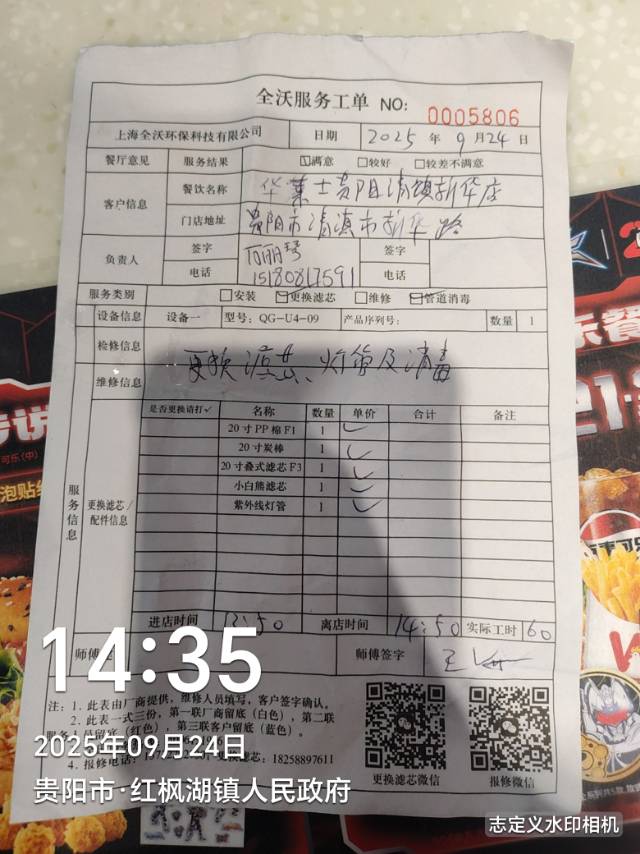 全沃服务工单 NO: 0005806
上海全沃环保科技有限公司 日期 2025 年 9 月 24 日
餐厅意见 服务结果 ☑满意 □较好 □较差不满意
客户信息 餐饮名称 华莱士贵阳清镇新华店
门店地址 贵阳市清滇市新华路
负责人 签字 签字
电话 15180817591 电话
服务类别 □安装 ☑更换滤芯 □维修 ☑管道消毒
设备信息 设备一 型号: QG-U4-09 产品序列号: 数量 1
检修信息
更换滤芯、灯管及消毒
维修信息
服务信息
更换滤芯/配件信息
是否更换请打✓ 名称 数量 单价 合计 备注
20寸PP棉F1 1 ✓
20寸炭棒 1 ✓
20寸叠式滤芯F3 1 ✓
小白熊滤芯 1 ✓
紫外线灯管 1 ✓
进店时间 13:50 离店时间 14:50 实际工时 60
师傅 师傅签字 王
注: 1. 此表由厂商提供, 维修人员填写, 客户签字确认。
2. 此表一式三份, 第一联厂商留底(白色), 第二联
服务人员留底(红色), 第三联客户留底(蓝色)。
4. 报修电话: 更换滤芯: 18258897611
更换滤芯微信 报修微信
14:35
2025年09月24日
贵阳市·红枫湖镇人民政府
志定义水印相机
可乐(中)
泡贴纸